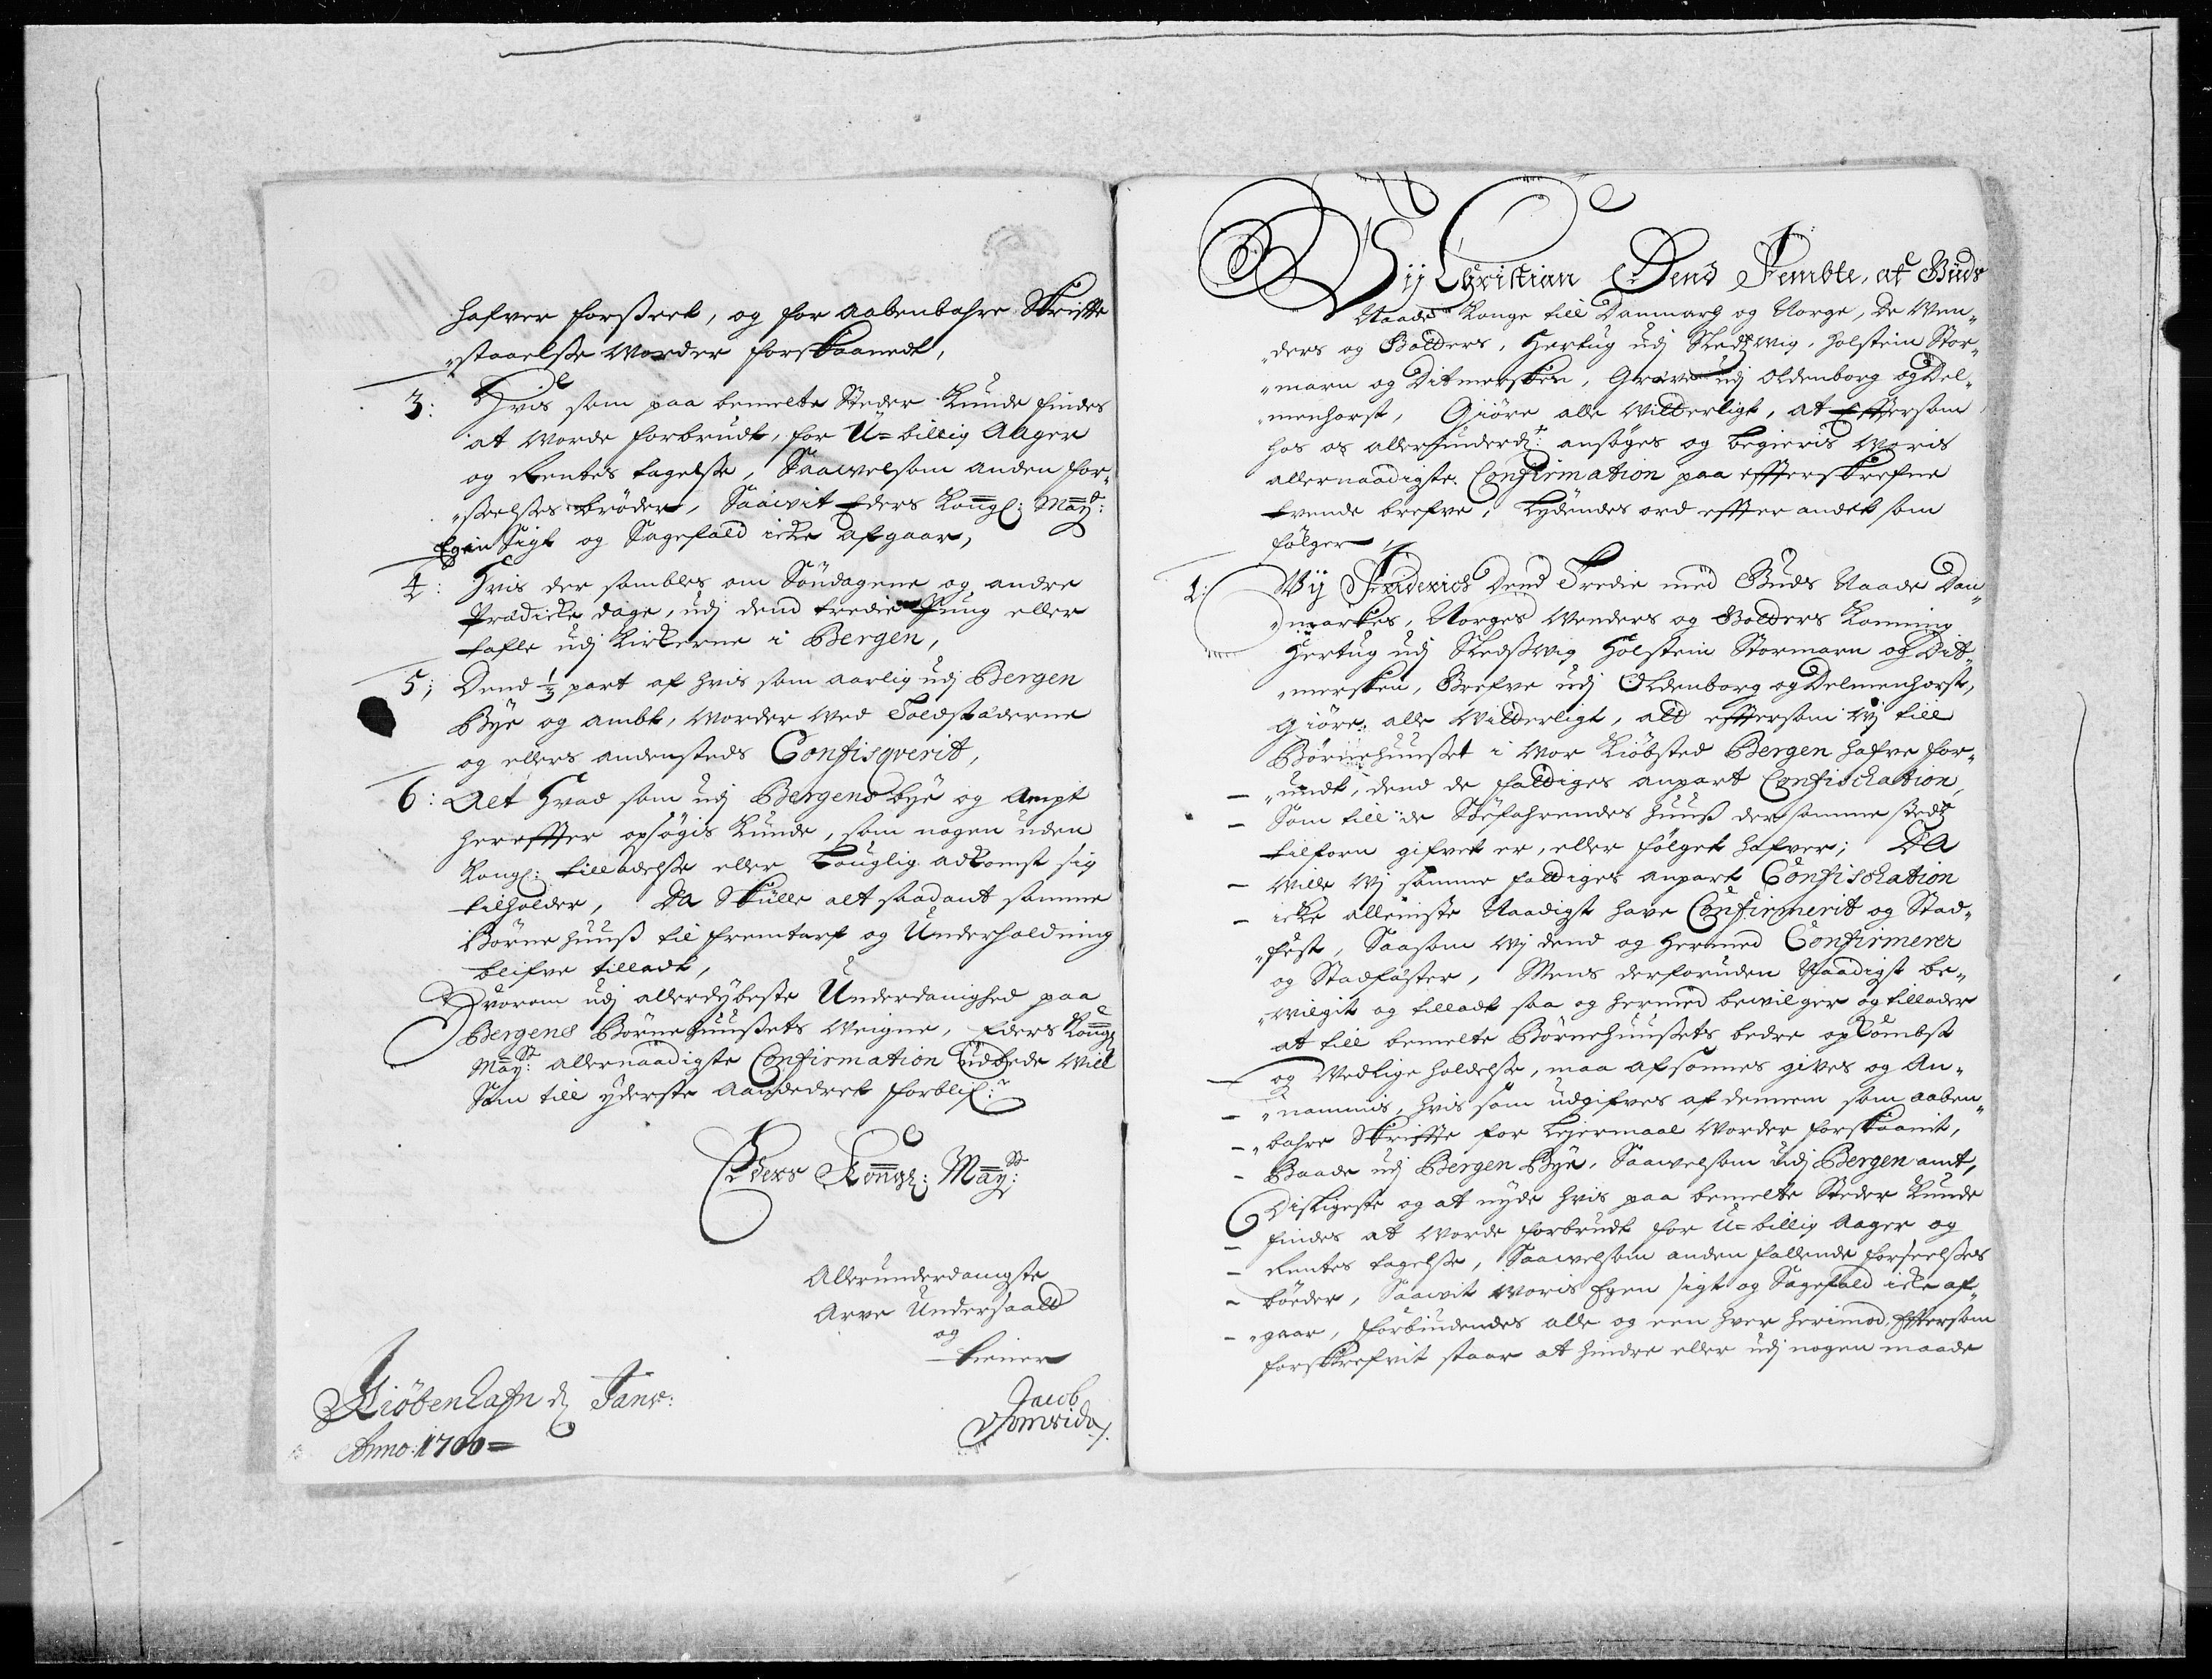 hafver forseet, og for aabenbahre Skriffte
„staaelse vorder forskaanedt,
3: Hvis som paa bemelte Steder kunde findes
at vorde forbrudt, for U=billig Aager
og Rentes tagelse, Saavelsom anden for„
„seelses bröder, Saavit Eders Kongl: May:tt
Egin Sigt og Sagefald icke afgaar,
4: Hvis der sambles om Söndagene og andre
Prædicke dage, udj dend tredie Pung eller
tafle udj Kirkerne i Bergen,
5; Dend 1/3 part af hvis som aarlig udj Bergen
Bye og ambt, vorder ved Toldstæderne
og ellers andensteds Confisqverit,
6: Alt hvad som udj Bergens bye og Ampt
hereffter opsögis kunde, som nogen uden
Kongl: tilladelse eller Louglig adkomst sig
tilholder, Da Skulle alt saadant samme
Börnehuus til fremtarf og Underholdning
blifve tilladt,
Hvorom udj allerdybeste Underdanighed paa
Bergens Börnehuusets Veigne, Eders Kongl
May:tt allernaadigste Confirmation udbede vill
Som till yderste Aandedret forblif:r
Eders Kongl: May:tt
Allerunderdanigste
Arve Undersaatt
og
tiener
Kiöbenhafn d Janv:
Anno: 1700=
Jacob
Vij Christian Dend Fembte, af Guds
Naade Konge till Danmarg og Norge, De Ven„
„ders og Gotters, Hertug udj Sledsvig, Holstein Stor„
„marn og Ditmersken, Greve udj Oldenborg og Del„
„menhorst, Giöre alle vitterligt, at Effterson
hos os allerunderd:st ansöges og begieris Voris
allernaadigste Confirmation paa effterskrefne
tvende brefve, Lydendes ord effter andet som
fölger
1: Vij Friderich Dend Tredie med Guds Naade Dan„
„markes, Norges Venders og Gotters Konning
Hertug udj Sledsvig Holstein Stormarn og Dit„
„mersken, Grefve udj Oldenborg og Delmenhorst,
Giöre: alle Vitterligt, att effterson vj till
Börnehuuset i vor Kiöbsted Bergen hafve for„
„undt, dend de fattiges anpart Confischation,
Som till de Söefahrendes huus der samme stedt
tilforn gifvet er, eller fölget hafver; Da
ville vj samme fattiges anpart Confischation
icke alleniste Naadigst have Confirmerit og Stad„
„fest, Saasom vj dend og hermed Confirmerer
og Stadfæster, Mens derforuden Naadigst be„
„vilgit og tilladt saa og hermed bevilger og tillader
at till bemelte Börnehuusets bedre opkombst
og Vedlige holdelse, maa afsonnes gives og An„
„nammis, hvis som udgifves af dennem som aaben„
„bahre Skriffte for Lejermaal vorder forskaanit,
Baade udj Bergen Bye, Saavelsom udj Bergen amt,
Disligeste og at nyde hvis paa bemelte Steder kunde
findes at vorde forbrudt for U=billig Aager og
Rentes tagelse, Saavelsom anden fallende forseelses
böeder, Saavit voris Egen sigt og Sagefald icke af„
„gaar, forbiudendes alle og een hver herimod, Effterson
forskrefvit staar at hindre eller udj nogen maade